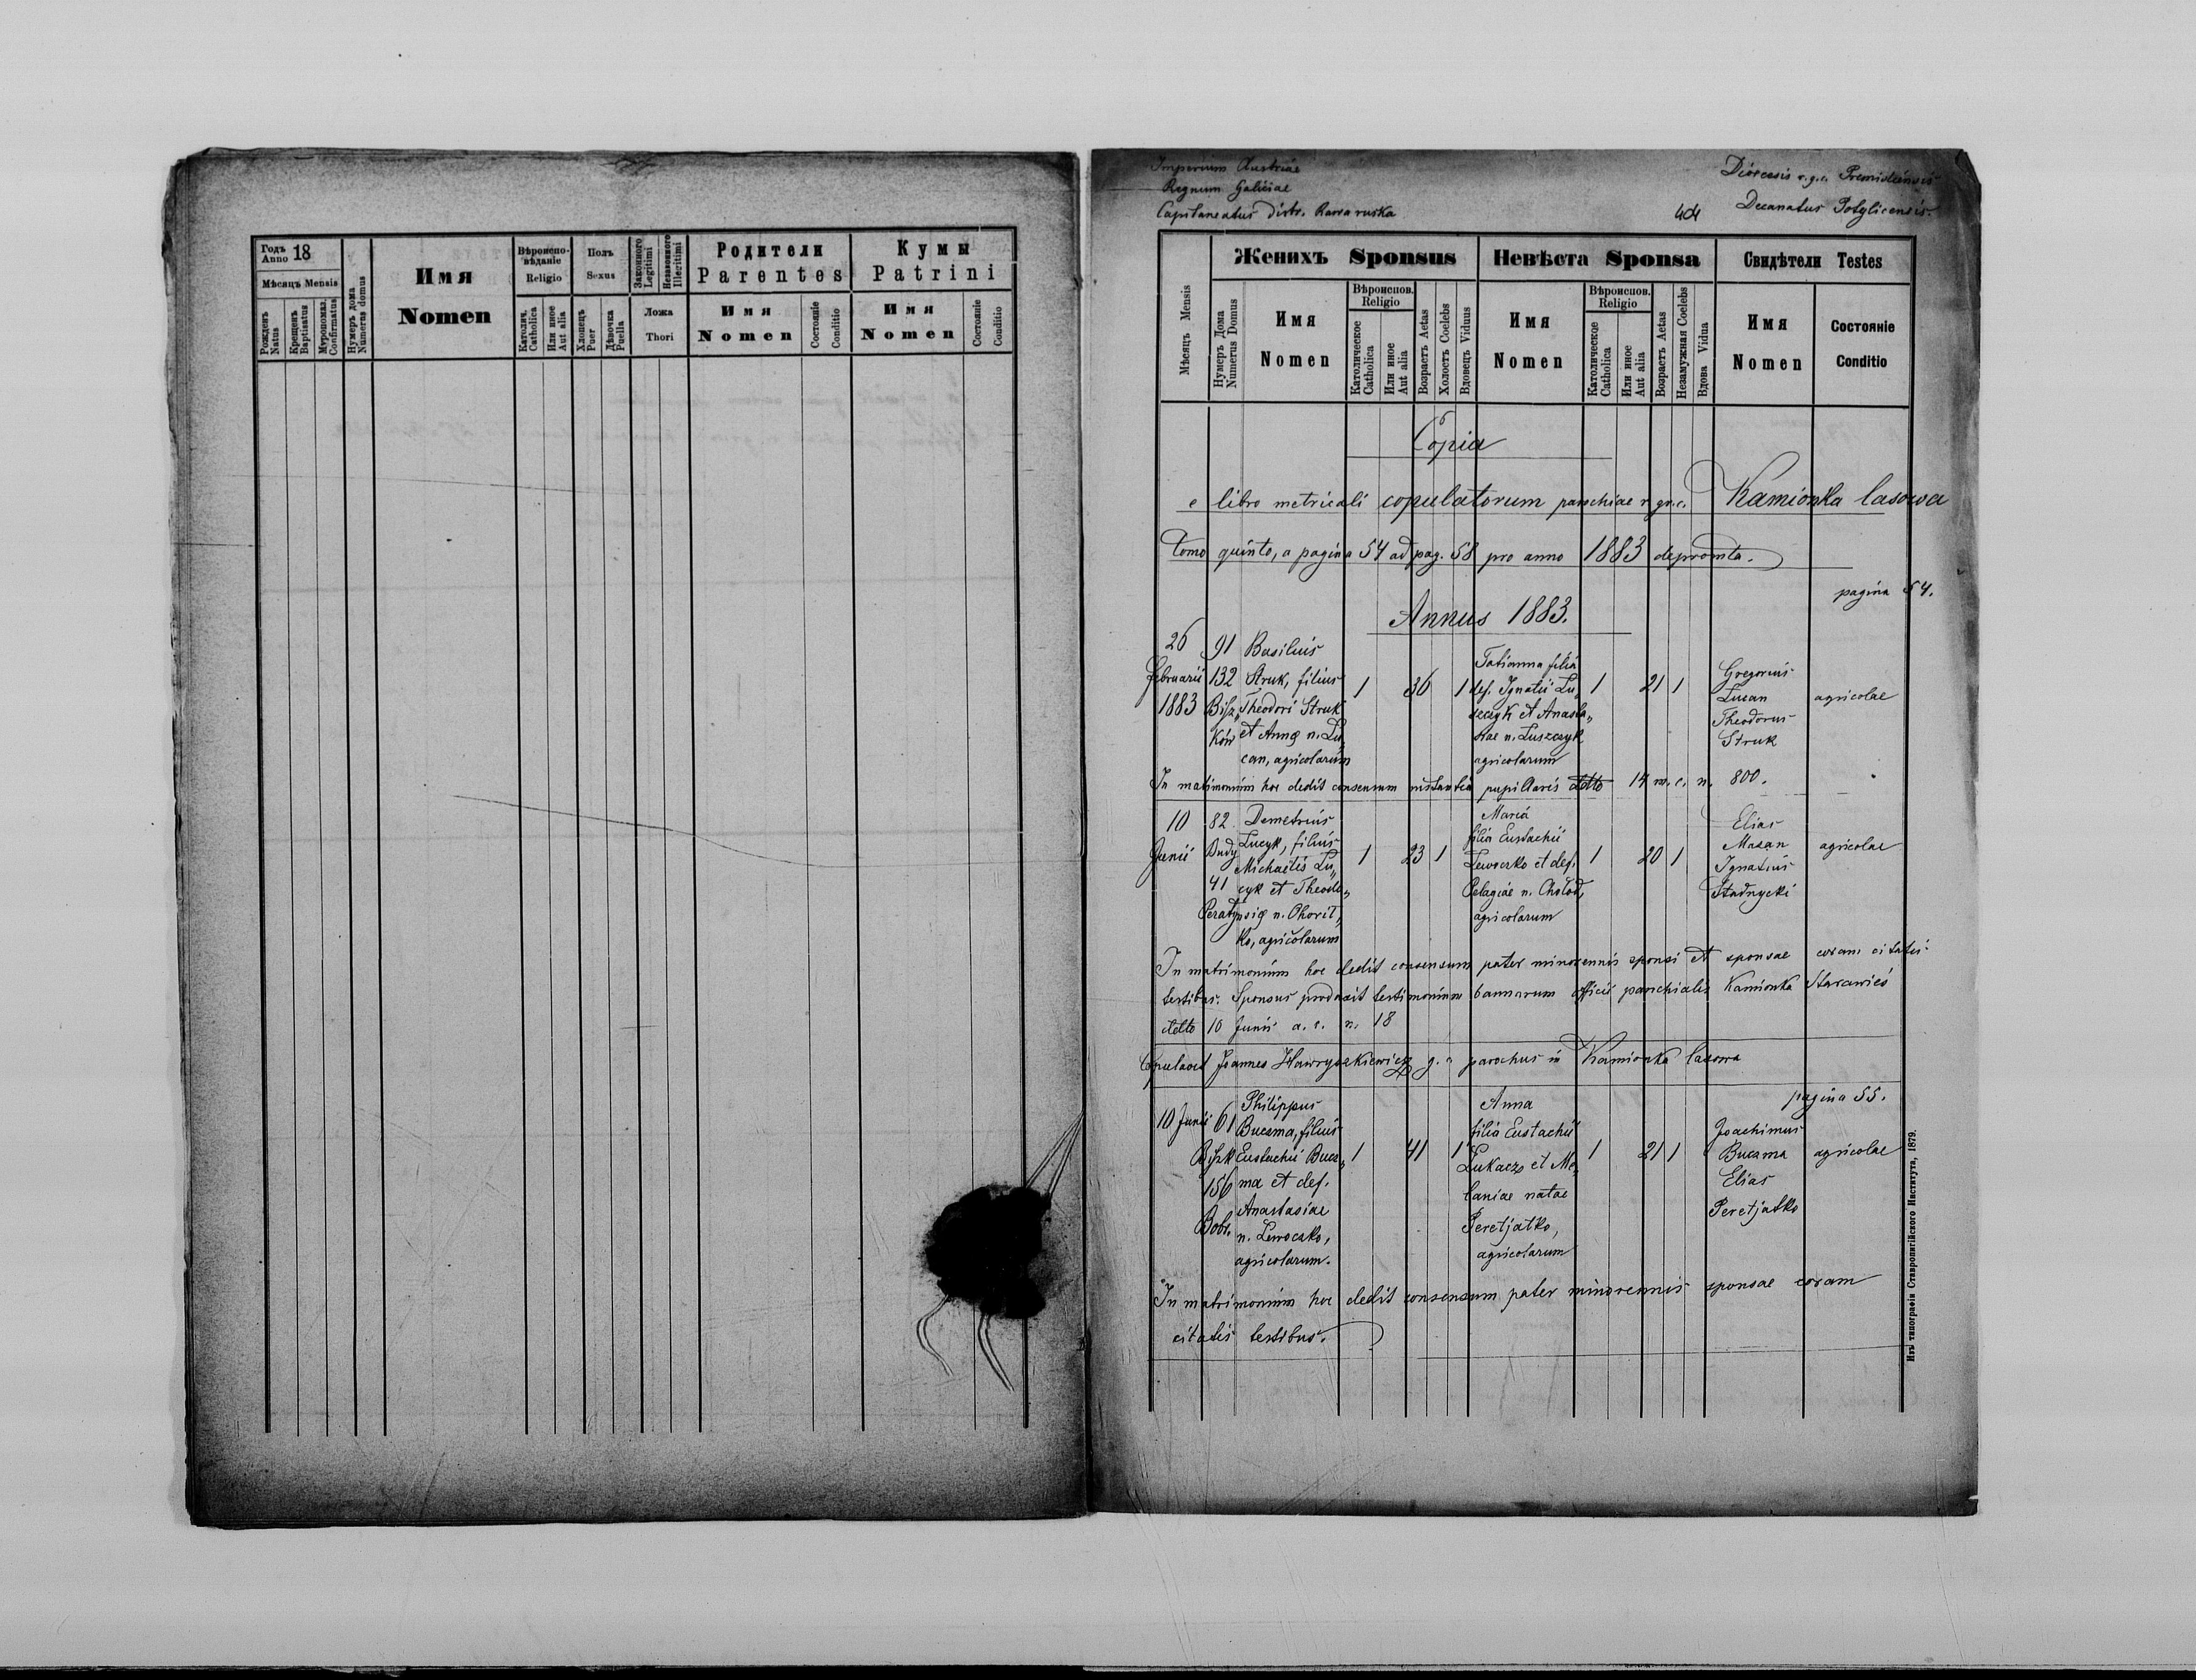 Годъ Anno 18
Мѣсяцъ Mensis
Рожденъ Natus
Крещенъ Baptisatus
Мѵропомаз. Confirmatus
Нумеръ дома Numerus domus
Имя
Nomen
Вѣроиспо-
вѣданіе
Religio
Католич. Catholica
Или иное Aut alia
Полъ
Sexus
Хлопецъ Puer
Дѣвочка Puella
Законного Legitimi
Незаконного Illegitimi
Ложа
Thori
Родители
Parentes
Имя
Nomen
Состояніе
Conditio
Кумы
Patrini
Имя
Nomen
Состояніе
Conditio
Imperium Austriae
Regnum Galiciae
Capitaneatus distr. Rawa ruska
Dioecesis r.g.c. Premisliensis
Decanatus Potylicensis.
Мѣсяцъ Mensis
Женихъ Sponsus
Нумеръ Дома
Numerus Domus
Имя
Nomen
Вѣроиспов.
Religio
Католическое
Catholica
Или иное
Aut alia
Возрастъ Aetas
Холостъ Coelebs
Вдовецъ Viduus
Невѣста Sponsa
Имя
Nomen
Вѣроиспов.
Religio
Католическое
Catholica
Или иное
Aut alia
Возрастъ Aetas
Незамужная Coelebs
Вдова Vidua
Свидѣтели Testes
Имя
Nomen
Состояніе
Conditio
Copia
e libro metricali copulatorum parochiae r. gr. c. Kamionka lasowa
Tomo quinto, a pagina 54 ad pag. 58 pro anno 1883 depromta.
pagina 54.
Annus 1883.
26
Februarii
1883
91
132
Bisz„
ków
Basilius
Struk, filius
Theodori Struk
et Annę n. Lu„
can, agricolarum
1 36 1
Tatianna filia
def. Ignatii Lu„
szczyk et Anasta„
siae n. Łuszczyk
agricolarum
1 21 1
Gregorius
Lucan
Theodorus
Struk
agricolae
In matrimonium hoc dedit consensum instantia pupillaris ddtto 14 m. c. n. 800.
10
Junii
82
Budy
41
Peratyn
Demetrius
Lucyk, filius
Michaelis Lu„
cyk et Theodo„
się n. Choril„
ko, agricolarum
1 23 1
Maria
filia Eustachii
Lewoczko et def.
Pelagiae n. Chołod,
agricolarum
1 20 1
Elias
Mazan
Ignatius
Stadnycki
agricolae
In matrimonium hoc dedit consensum pater minorennis sponsi et sponsae coram citatis
testibus. Sponsus produxit testimonium bannorum officii parochialis Kamionka Starawieś
ddtto 10 Junii a. c. n. 18
Copulavit Joannes Hawryszkiewicz g. c. parochus in Kamionka lasowa
pagina 55.
10 Junii
61
Biszk
156
Bobr.
Philippus
Buczma, filius
Eustachii Bucz„
ma et def.
Anastasiae
n. Lewoczko,
agricolarum.
1 41 1
Anna
filia Eustachii
Łukacz et Me„
laniae natae
Peretjatko,
agricolarum
1 21 1
Joachimus
Buczma
Elias
Peretjatko
agricolae
In matrimonium hoc dedit consensum pater minorennis sponsae coram
citatis testibus.
Изъ типографіи Ставропигійского Института, 1879.